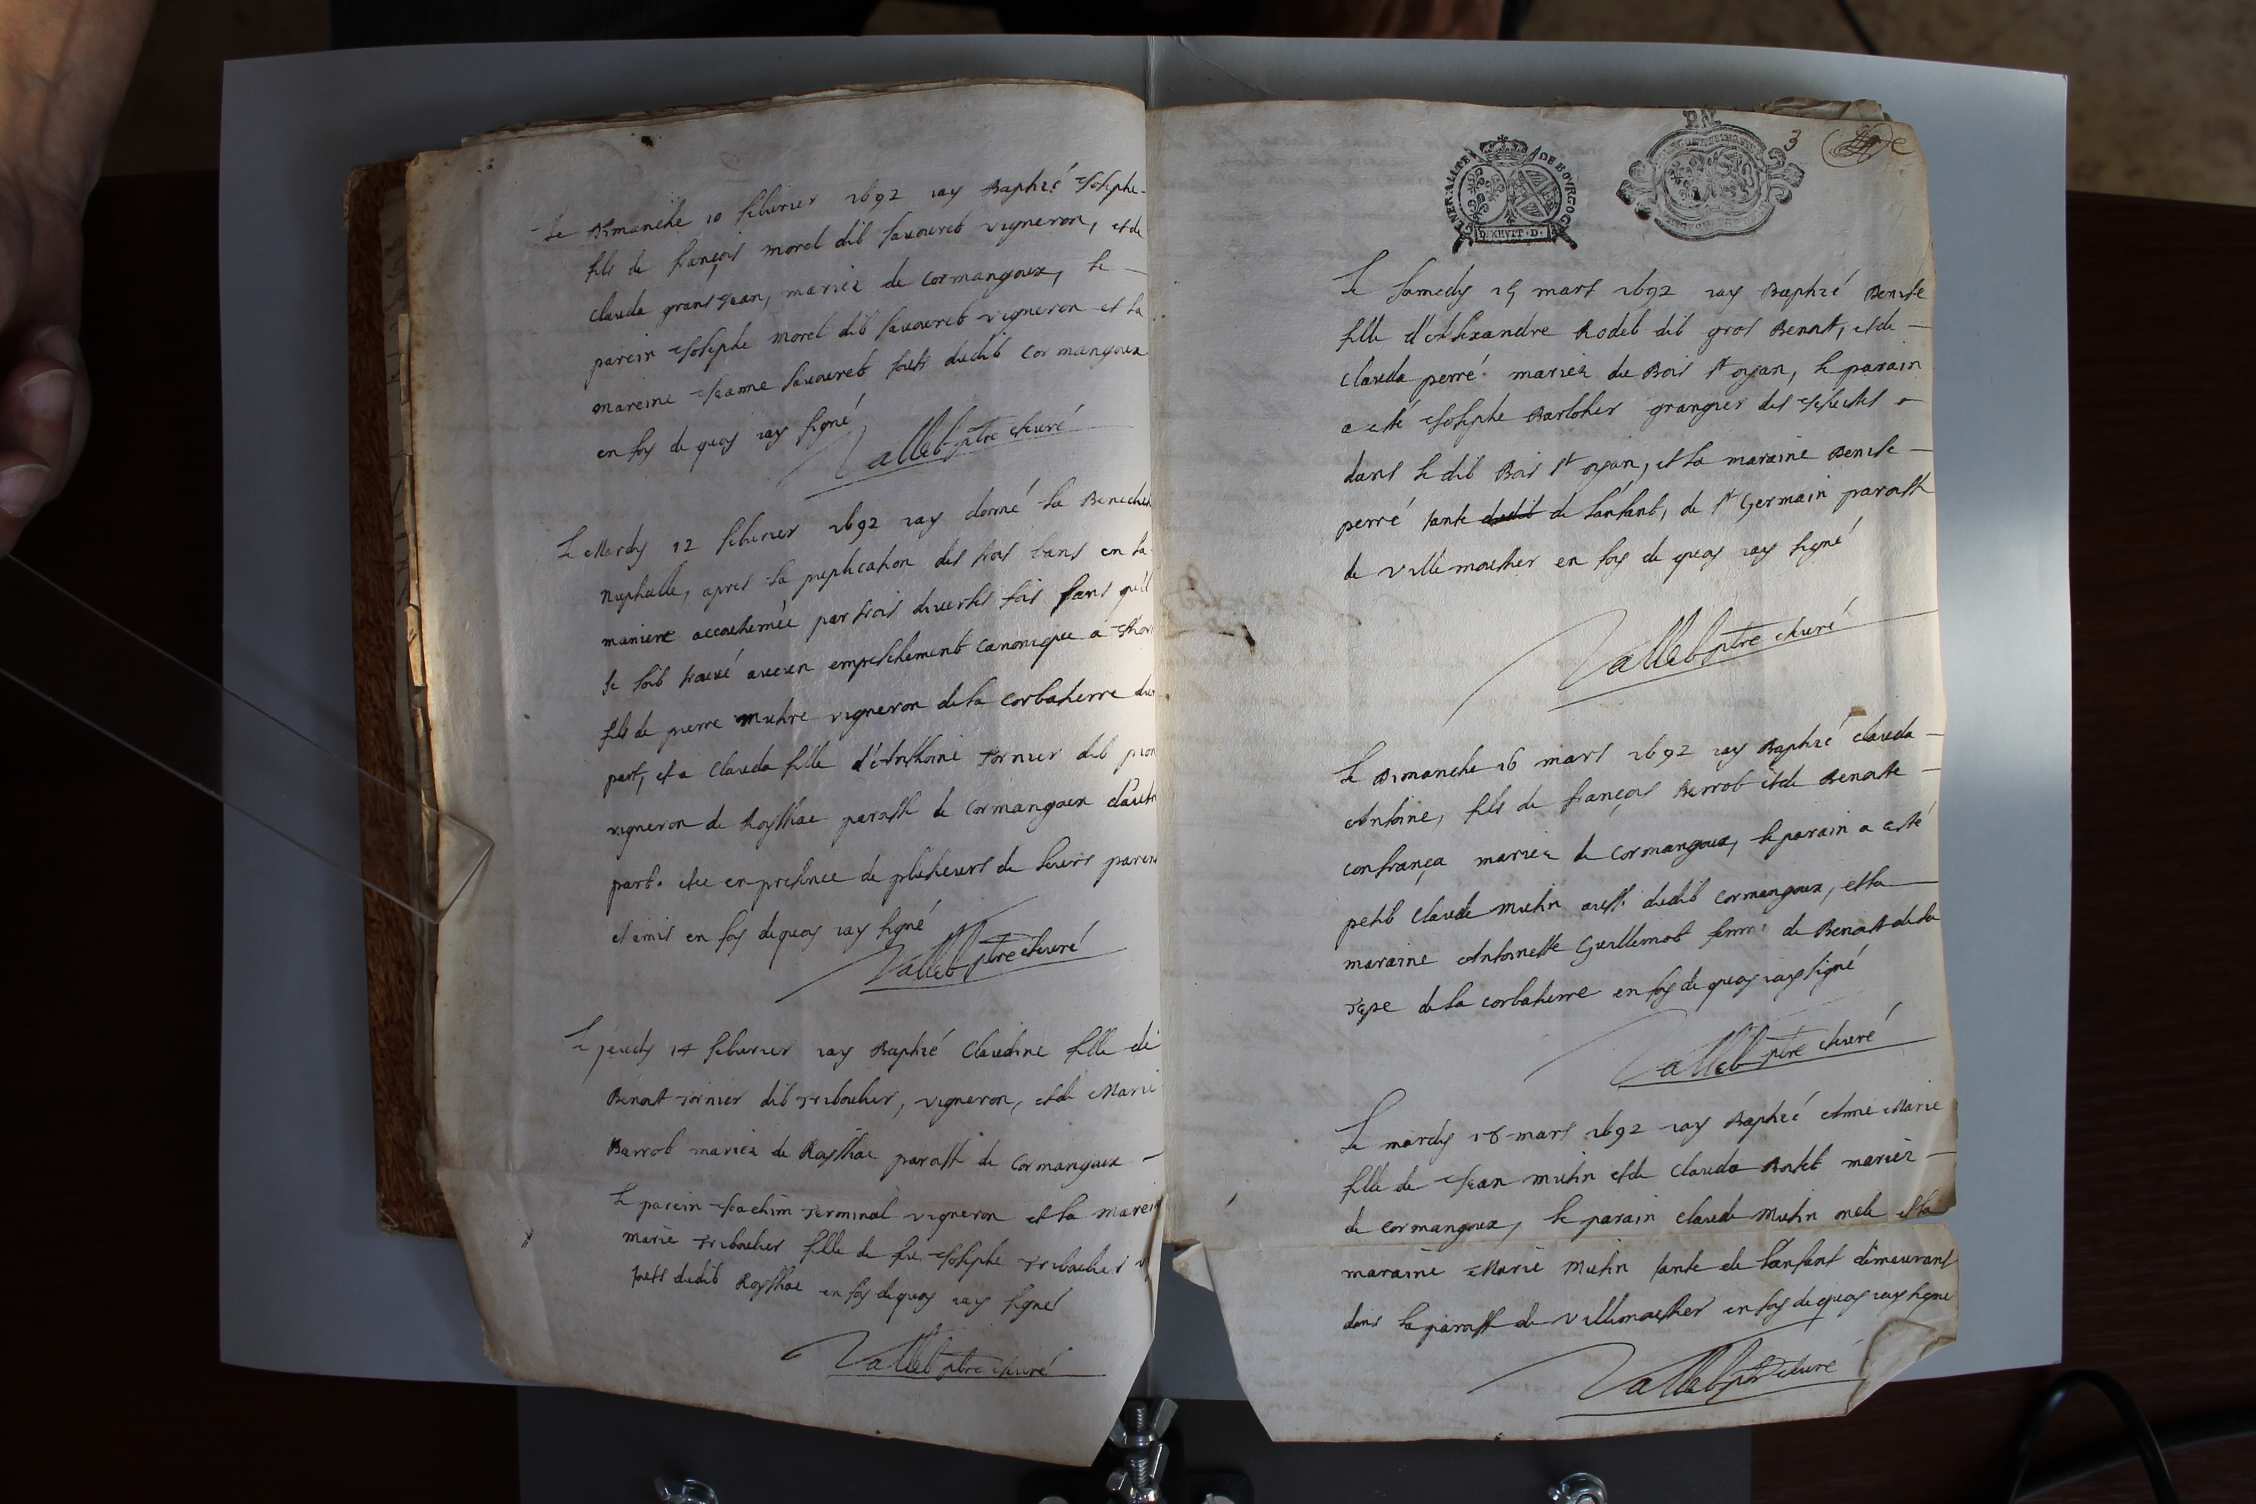 Le Dimanche 10 febvrier 1692 iay Baptizé Josephe
fils de françois morel dit savouret vigneron, et de
clauda grant Jean, mariez de Cormangoux, le
parein Josephe morel dit savouret vigneron et la
mareine Jeanne savouret touts dudit Cormangoux
en foy de quoy iay signé
Vallet ptre Curé
Le Mardy 12 febvrier 1692 iay donné la
nuptialle, apres la publication des trois bans en la
maniere accoutumée par trois diverses fois sans qu'il
se soit trouvé aucun empeschement canonique a
fils de pierre vigneron de la Corbatiere
part, et a Clauda fille d'Anthoine Tornier dit
vigneron de Roissiat paroisse de Cormangoux d'autre
part. et ce en presence de plusieurs de leurs
et amis en foy de quoy iay signé
Vallet ptre Curé
Le jeudy 14 febvrier iay Baptizé Claudine fille de
Benoit Tornier dit Triboulier, vigneron, et de Marie
Barrot mariez de Roissiat paroisse de Cormangoux
le parein Joachim Terminal vigneron et la
marie Tribouliet fille de feu Josephe Tribouliet
touts dudit Roissiat en foy de quoy iay signé
Vallet ptre Curé
GENERALITE DE BOVRGOG
HVIT D.
3
Le samedy 15 mars 1692 iay Baptizé Benoite
fille d'Alexandre Rodet dit gros Benoit, et de
Clauda perré mariez du Bois St oyan, le parain
a esté Josephe granger des
dans le dit Bois St oyan, et la maraine Benoite
perré tante de l'anfant, de St Germain paroisse
de Villemoutier en foy de quoy iay signé
Vallet ptre Curé
Le Dimanche 16 mars 1692 iay Baptizé clauda
Antoine, fils de françois Berrot et de Benoite
confrança mariez de Cormangoux, le parain a esté
petit Claude Muthin aussi dudit Cormangoux, et la
maraine Antoinette Guillemot femme de Benoit de la
de la Corbatiere en foy de quoy iay signé
Vallet ptre Curé
Le mardy 18 mars 1692 iay Baptizé Anne Marie
fille de Jean Muthin et de Clauda mariez
de Cormangoux, le parain Claude Muthin oncle et la
maraine Marie Muthin tante de l'anfant demeurant
dans la paroisse de Villemoutier en foy de quoy iay signé
Vallet ptre Curé